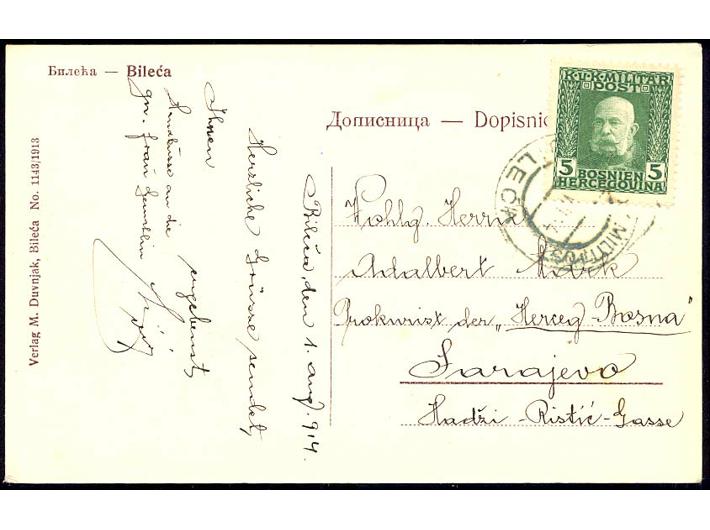 Билећа — Bileća
Дописница — Dopisnic
K.u.K. MILITÄR
POST
5 5
BOSNIEN
HERCEGOVINA
BILECA
MILIT. POST
Verlag M. Duvnjak, Bileća No. 1143/1913
Bileća, den 1. aug. 914.
Herzliche Grüsse sendet
Ihnen
ergebenst
Handküsse an die
gn. Frau Gemahlin
Wohlg. Herrn
Adalbert
Prokurist der „Herceg-Bosna"
Sarajevo
Hadži-Ristić-Gasse